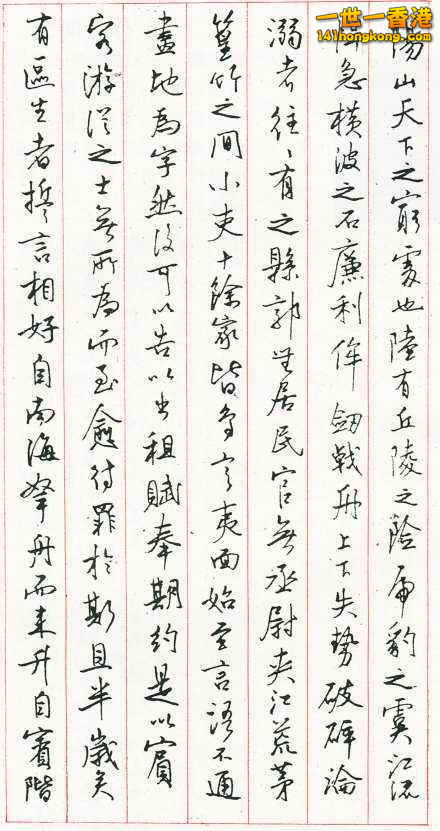 一世一香港
141hongkong.com
陽山天下之窮處也陸有丘陵之險虎豹之虞江流
急橫波之石廉利侔劒戟舟上下失勢破碎淪
溺者往〻有之縣郭無居民官無丞尉夾江荒茅
篁竹之間小吏十餘家皆鳥言夷面始至言語不通
畫地為字然後可以告以出租賦奉期約是以賓
客游從之士無所為而至愈待罪於斯且半歲矣
有區生者誓言相好自南海挐舟而來升自賓階